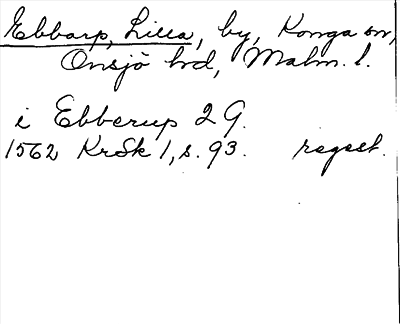 Ebbarp, Lilla, by, Konga sn,
Onsjö hrd, Malm. l.
i Ebberup 2 G.
1562 KrSk 1, s. 93. regest.